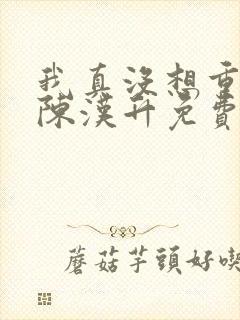 我真沒想重
陳漢升免費
蘑菇芋頭好喫